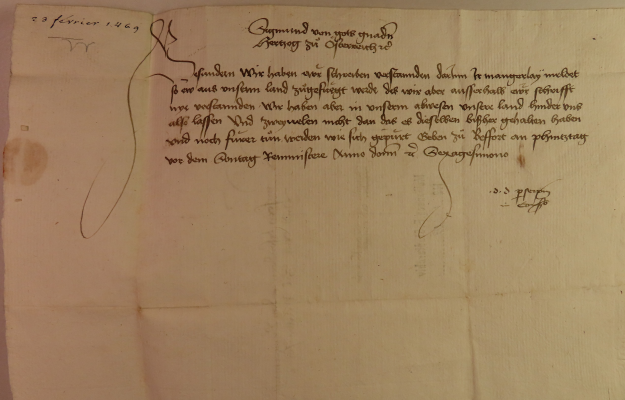 23 février 1469
Sigmund von gots gnadn
Hertzog zů Osterreich etc
Besundern Wir haben ewr schreiben verstannden darinn Ir mangerlay meldet
so ew aus unserm land zůgefuegt werde des wir aber ausserhalb ewr schrifft
nye verstannden Wir haben aber in unserm abwesen unsere land hinder uns
also lassen Und zweyuelen nicht dan das es dieselben bisher gehalten haben
und noch fuᵉrer tůn werden wie sich gepürt Geben zů Beffort an phintztag
vor dem Sontag Reminiscere Anno domi etc Sexagesimono
.d. d